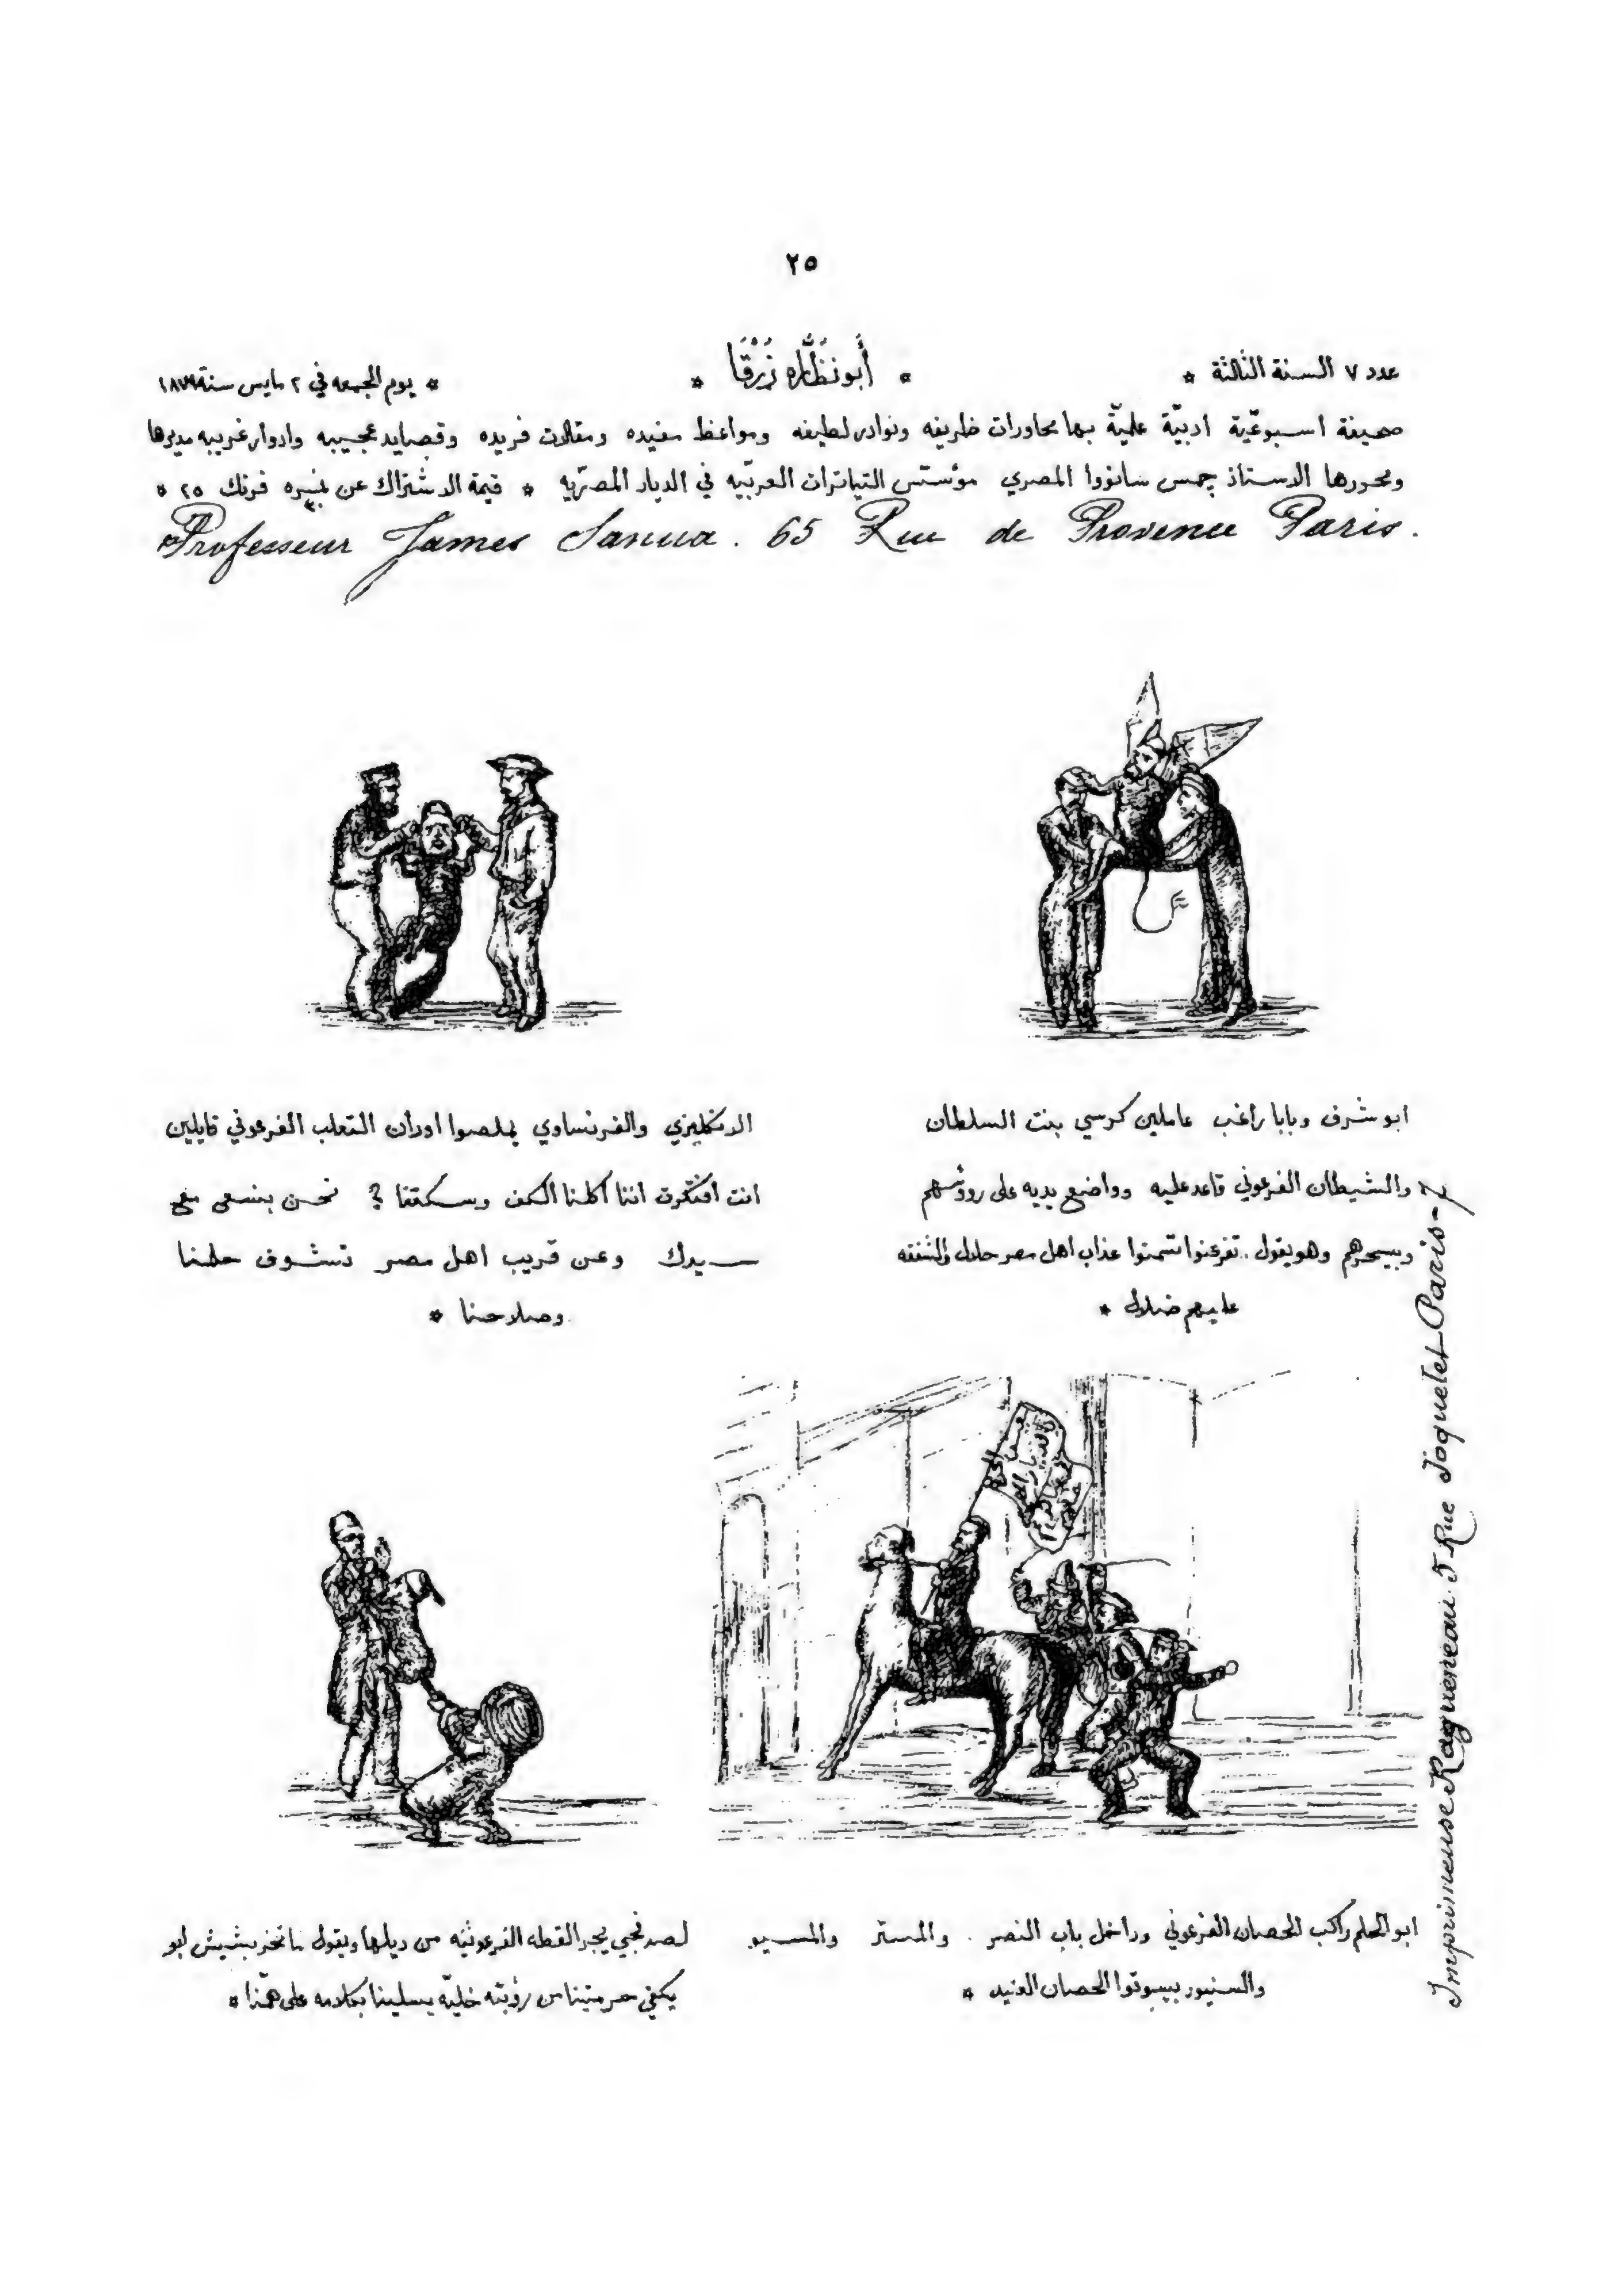 ٢٥
عدد ٧ السنة الثالثة * أَبُو نَظَّارَه زَرْقَا * يوم الجمعه في ٢ مايس سنة ١٨٧٩
صحيفة اسبوعيّة ادبيّة علميّة بها محاورات ظريفه ونوادر لطيفه ومواعظ مفيده ومقالات فريده وقصايد عجيبه وادوار غريبه مديرها
ومحررها الاستاذ جمس سانووا المصري مؤسّس التياترات العربيّه في الديار المصريّه * قيمة الاشتراك عن نمره فرنك ٢٥ *
Professeur James Sanua. 65 Rue de Provence Paris.
ابو شرف وبابا راغب عاملين كرسي بنت السلطان
والشيطان الفرعوني قاعد عليه وواضع يديه على رووسهم
وبيسحرهم وهو يقول. تفرعنوا عذاب اهل مصر حلال والشفقه
عليهم ضلال *
الانكليزي والفرنساوي يملصوا اودان التعلب الفرعوني قايلين
انت افتكرت اننا اكلنا الكف وسكتنا ؟ نحن بنسعى مع
سيدك وعن قريب اهل مصر تشوف حلمنا
وصلاحنا *
ابو الحلم راكب الحصان الفرعوني وداخل باب النصر. والمستر والمسيو
والسنيور بيسوقوا الحصان العنيد *
يجر القطه الفرعونيه من ديلها ويقول ابو
يكفي من رؤيته خليه يسلينا بكلامه على همّنا *
Imprimeuse Ragueneau 5 Rue Joquelet-Paris-7